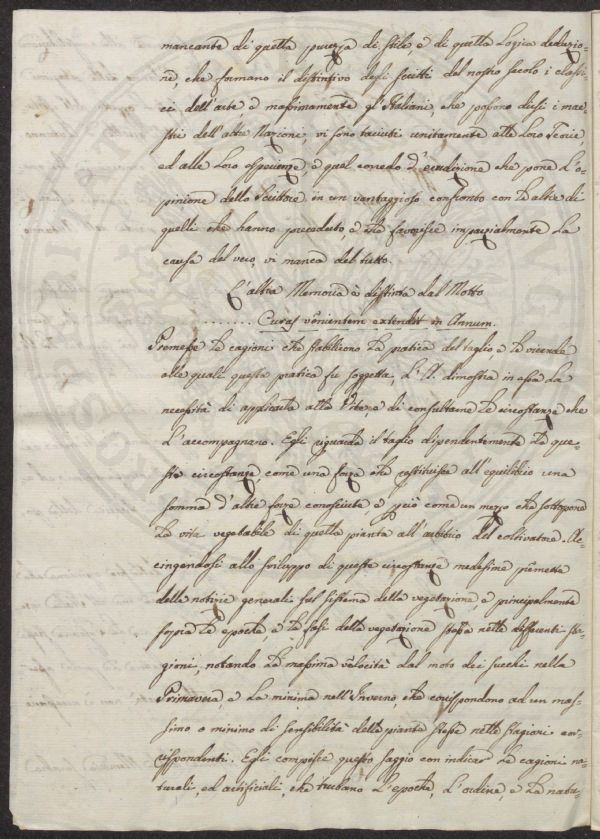 mancante di quella purezza di stile, e di quella Logica deduzio-
ne, che formano il distintivo degli scritti del nostro secolo i classi-
ci dell'arte e massimamente gl'Italiani, che possono dirsi i mae-
stri dell'altre Nazioni, vi sono taciuti unitamente alle loro Teorie,
ed alle loro esperienze, e quel corredo d'erudizione che pone l'o-
pinione dello Scrittore in un vantaggioso confronto con le altre di
quelli che hanno preceduto, e che favorisce imparzialmente la
causa del vero, vi manca del tutto.
L'altra Memoria è distinta dal Motto
....... Curas venientem extendit in Annum.
Premesse le cagioni che stabilirono la pratica del taglio e le vicende
alle quali questa pratica fu soggetta, l'A. dimostra in essa la
necessità di applicarla alla Vite, e di consultarne le circostanze che
l'accompagnano. Egli riguarda il taglio dipendentemente da que-
ste circostanze, come una forza che restituisce all'equilibrio una
somma d'altre forze conosciute, e però come un mezzo che sottopone
la vita vegetabile di quella pianta all'arbitrio del coltivatore. Ac-
cingendosi allo sviluppo di queste circostanze medesime premette
delle notizie generali sul sistema della vegetazione e principalmente
sopra le epoche e le fasi della vegetazione stessa nelle differenti sta-
gioni, notando la massima velocità dal moto dei succhi nella
Primavera, e la minima nell'Inverno, che corrispondono ad un mas-
simo o minimo di sensibilità della pianta stessa nelle stagioni cor-
rispondenti. Egli compisce questo saggio con indicar le cagioni na-
turali, ed artificiali, che turbano l'epoche, l'ordine, e la natu-